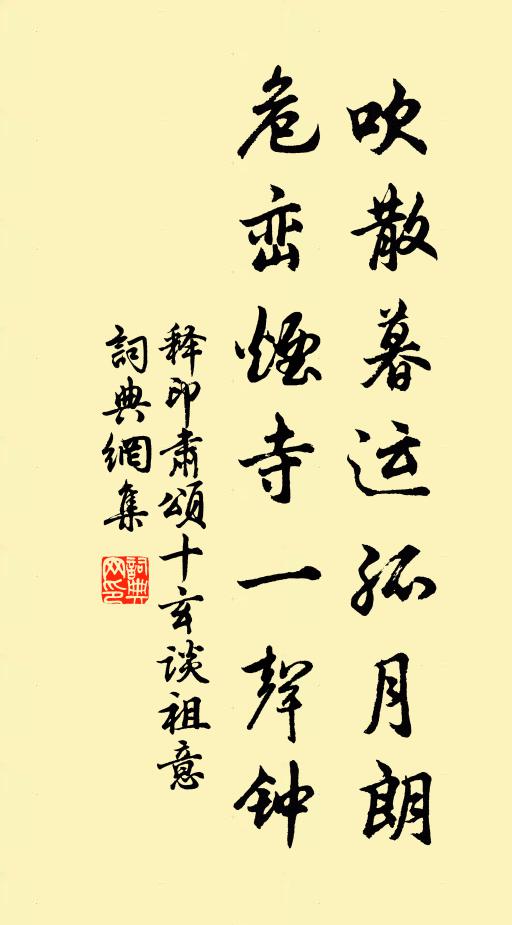 吹散暮运孤月朗
危峦煙寺一聲钟
释印肃頌十玄谈祖意
詞典網集
詞典网印